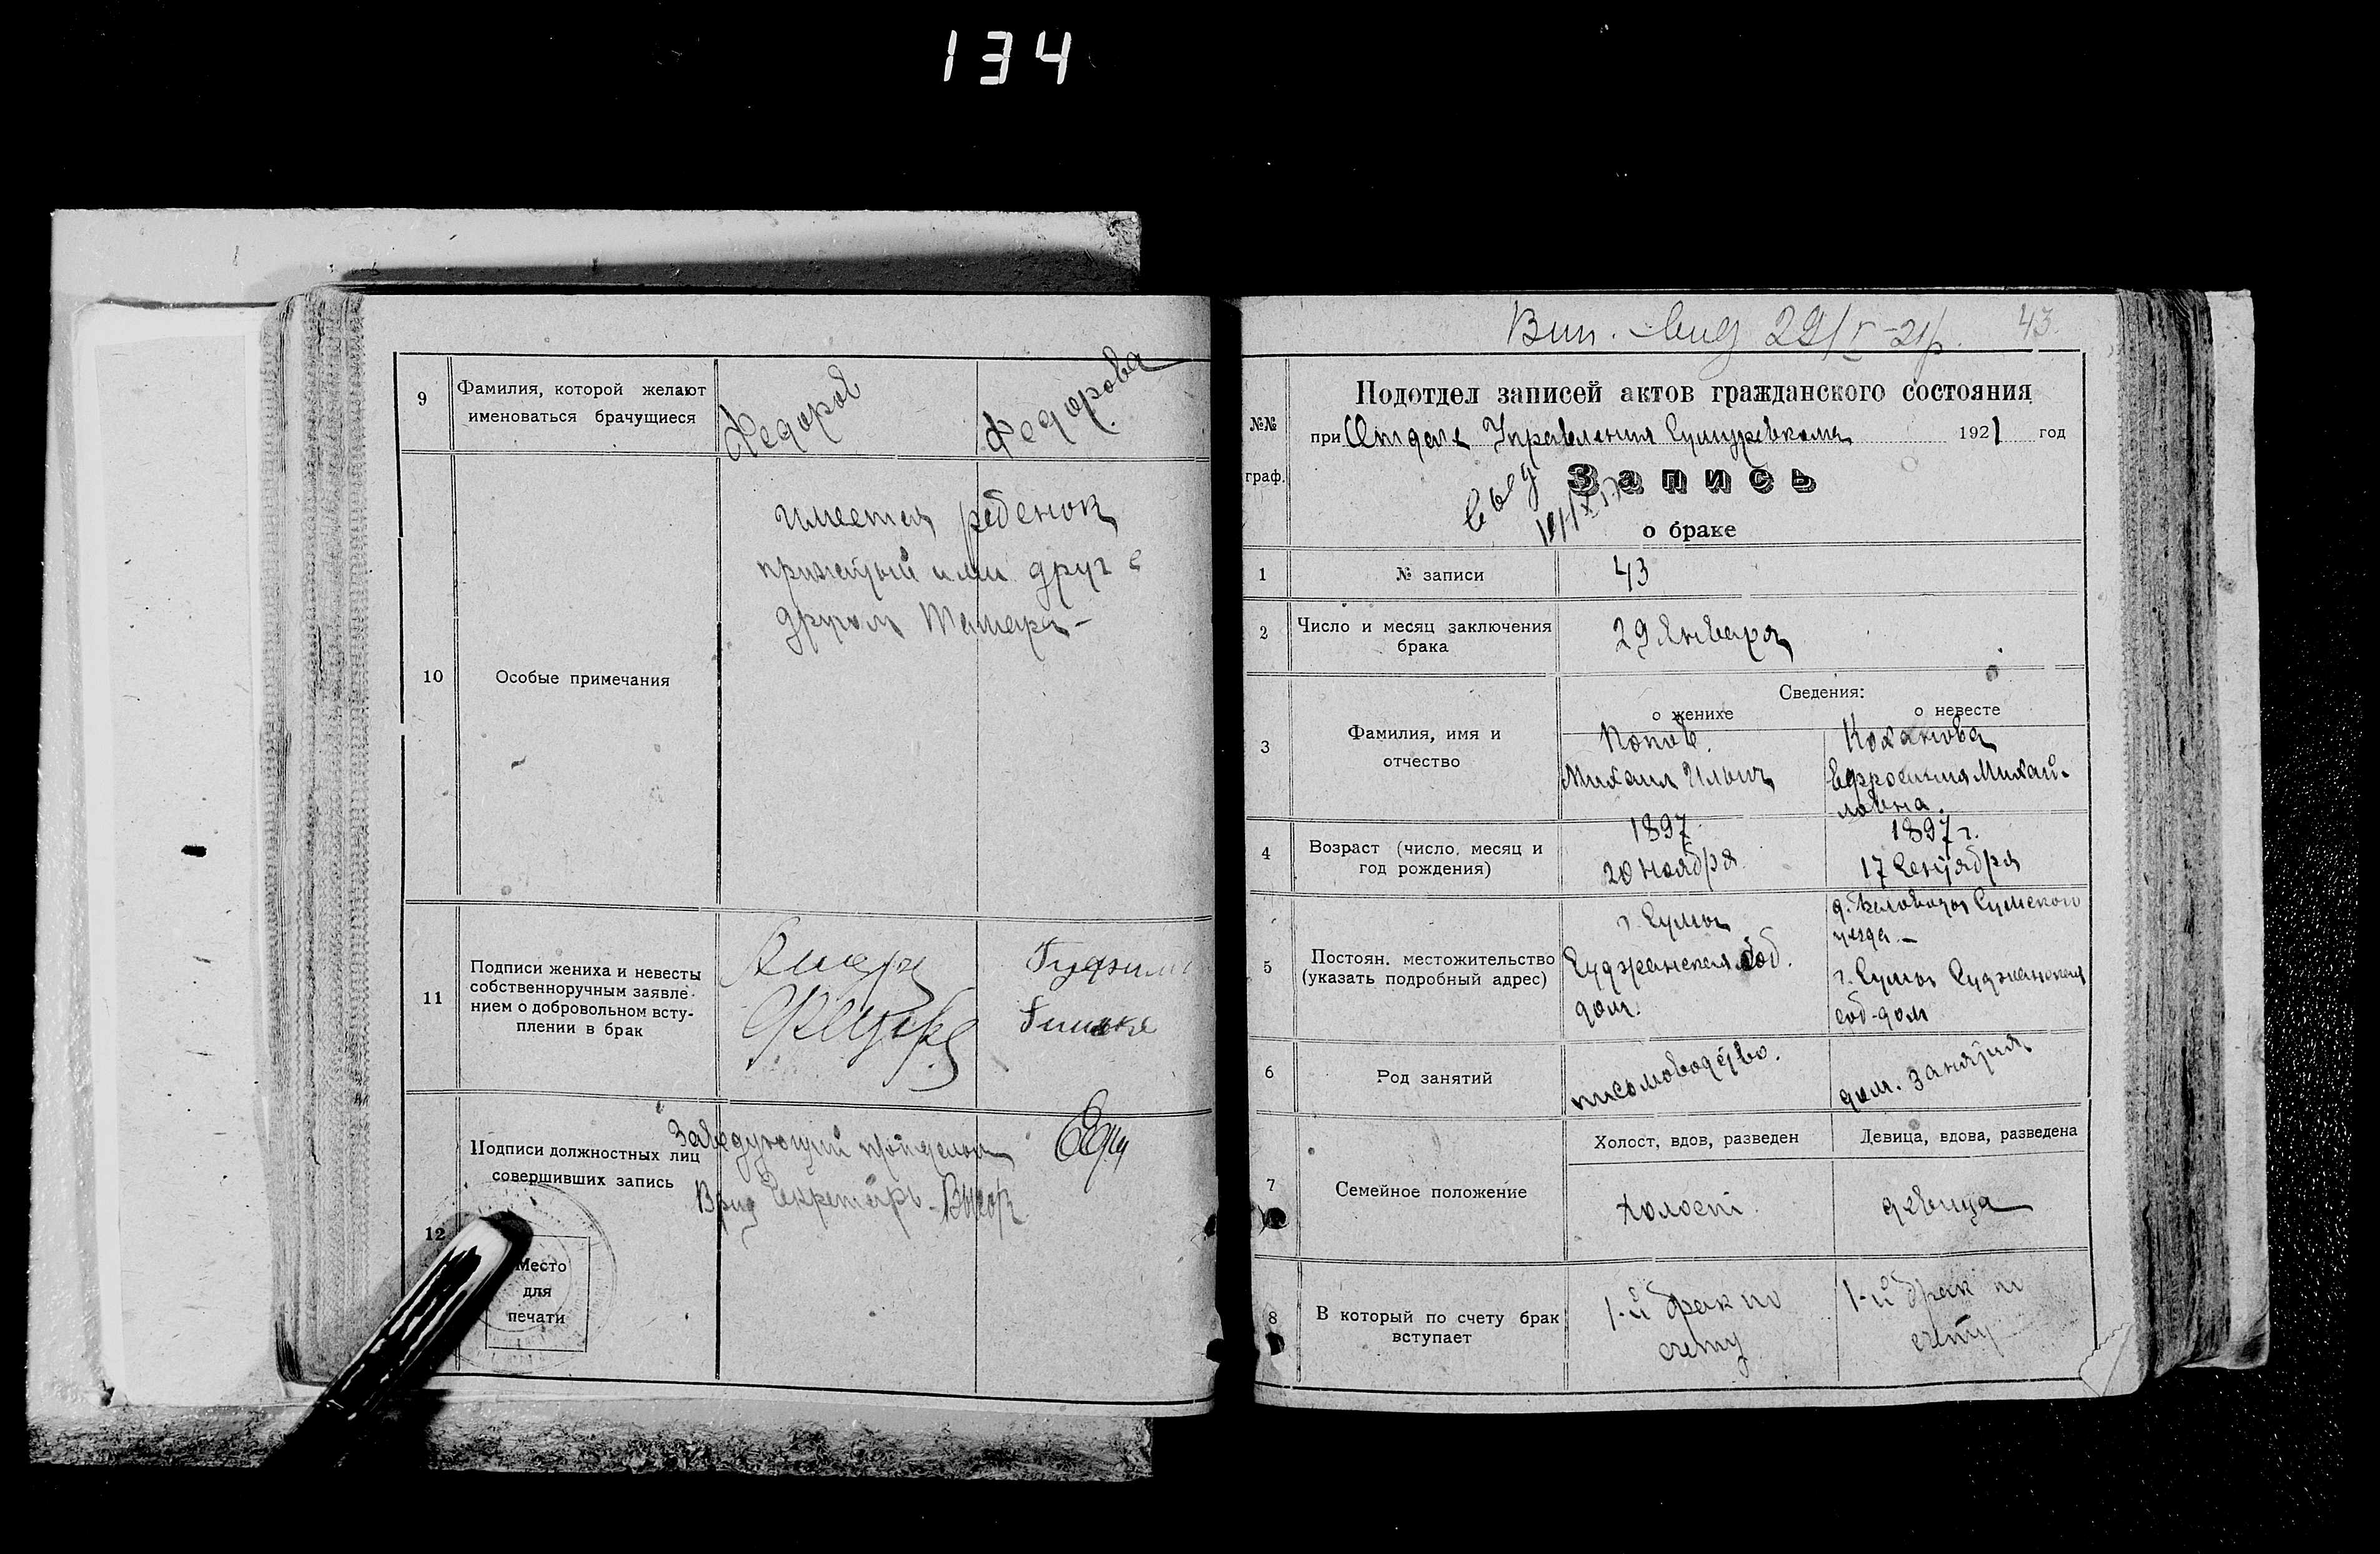 134
9
Фамилия, которой желают
именоваться брачущиеся
Федоров
Федорова
10
Особые примечания
имеется ребенок
прижитый ими друг с
другом Тамара -
11
Подписи жениха и невесты
собственноручным заявле-
нием о добровольном всту-
плении в брак
12
Подписи должностных лиц
совершивших запись
Заведующий
Врид Секретарь
Место
для
печати
29/I-21р. 43.
№№
граф.
Подотдел записей актов гражданского состояния
при Отделе Управления Сумуревкома 1921 год
выд
Запись
о браке
1
№ записи
43
2
Число и месяц заключения
брака
29 Января
3
Фамилия, имя и
отчество
Сведения:
о женихе
о невесте
Попов.
Михаил Ильич
Коханова
Ефросиния Михай-
ловна.
4
Возраст (число, месяц и
год рождения)
1897
20 ноября
1897 г.
17 Сентября
5
Постоян. местожительство
(указать подробный адрес)
г. Сумы
Суджанская соб.
дом.
Сумского
уезда. -
г. Сумы Суджанская
соб-дом
6
Род занятий
письмоводство.
дом. занятия
7
Семейное положение
Холост, вдов, разведен
Девица, вдова, разведена
холост.
девица
8
В который по счету брак
вступает
1-й брак по
счету
1-й брак по
счету